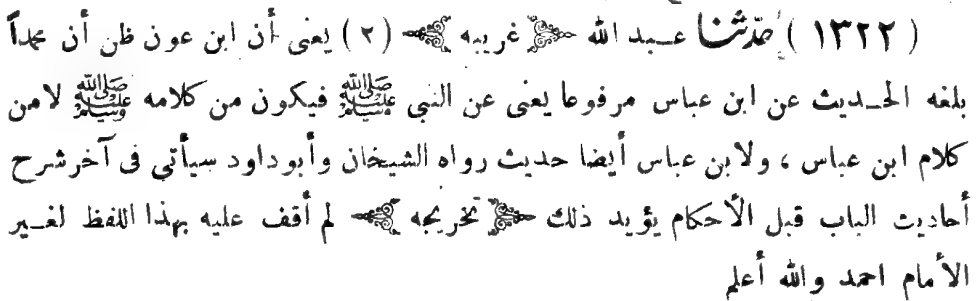 ( ١٣٢٢ ) حدّثنا عبد الله ﴿ غريبه ﴾ ( ٢ ) يعنى أن ابن عون ظن أن محمداً
بلغه الحديث عن ابن عباس مرفوعا يعنى عن النبى ﷺ فيكون من كلامه ﷺ لامن
كلام ابن عباس ، ولابن عباس أيضا حديث رواه الشيخان وأبوداود سيأتى فى آخرشرح
أحاديث الباب قبل الأحكام يؤيد ذلك ﴿ تخريجه ﴾ لم أقف عليه بهذا اللفظ لغير
الأمام احمد والله أعلم